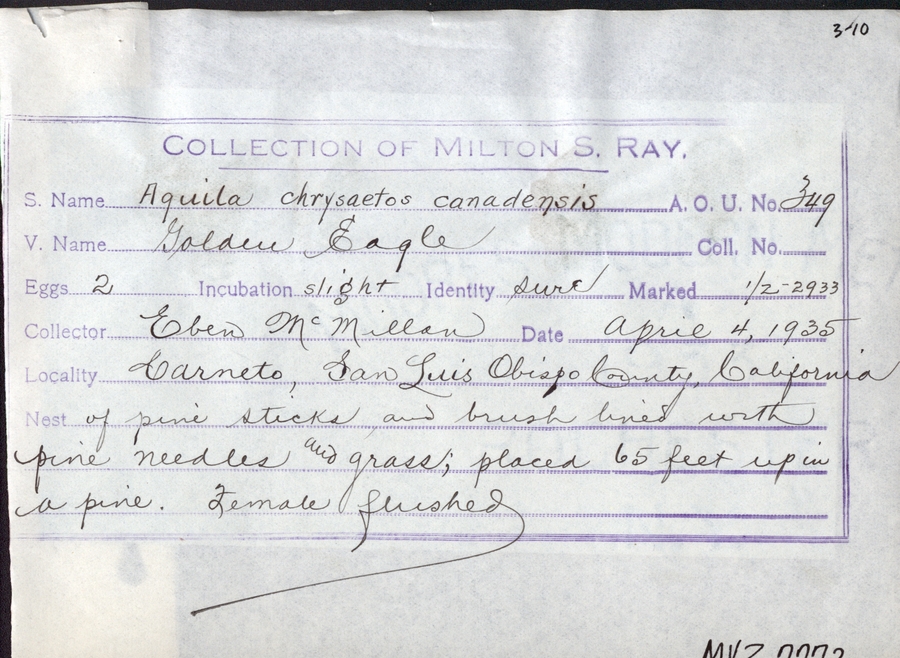 3-10
COLLECTION OF MILTON S. RAY.
S. Name Aquila chrysaetos canadensis A. O. U. No. 349
V. Name Golden Eagle Coll. No.
Eggs 2 Incubation slight Identity sure Marked 1/2-2933
Collector Eben McMillan Date April 4, 1935
Locality Carneto, San Luis Obispo County, California
Nest of pine sticks and brush lined with
pine needles and grass; placed 65 feet up in
a pine. Female flushed
MVZ